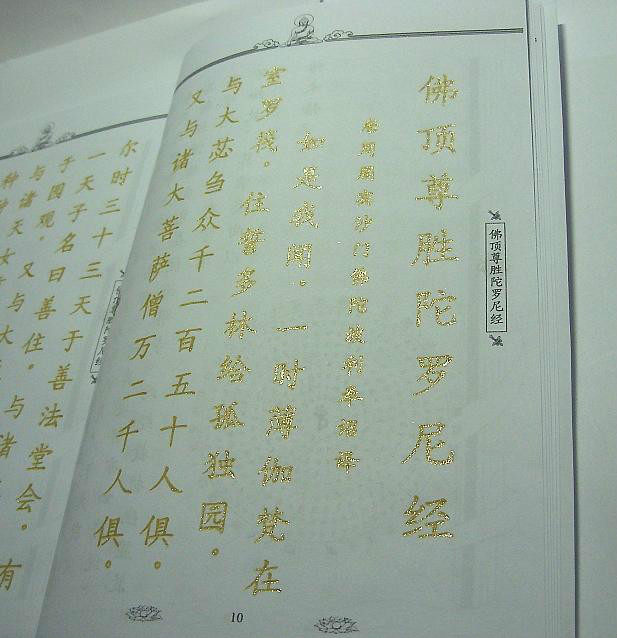 佛顶尊胜陀罗尼经
佛顶尊胜陀罗尼经
沙门佛陀波利奉诏译
如是我闻。一时薄伽梵在
室罗筏。住誓多林给孤独园。
与大苾刍众千二百五十人俱。
又与诸大菩萨僧万二千人俱。
10
尔时三十三天于善法堂会。有
一天子名曰善住。与诸
于园观。又与大
与诸天女
种种